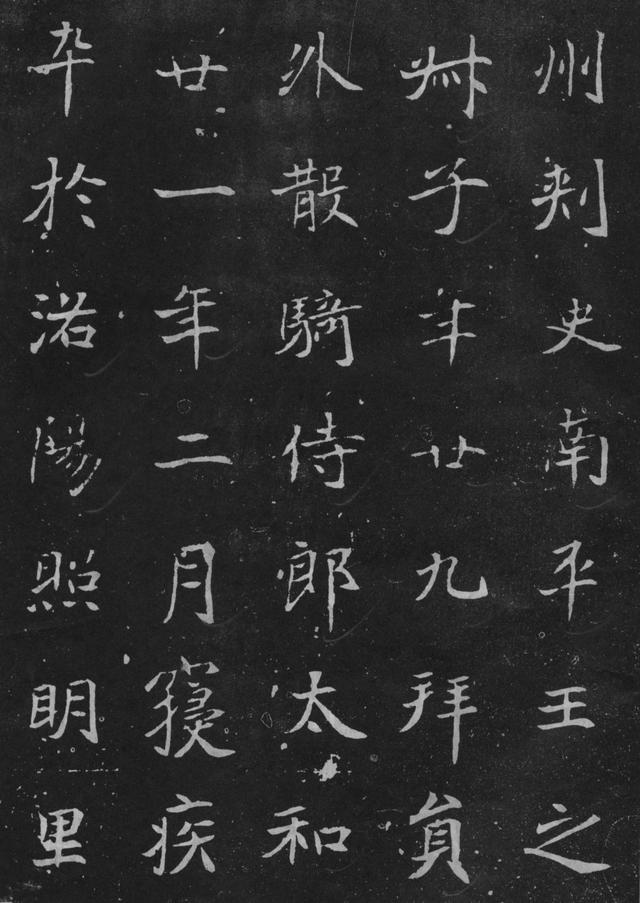 州刺史南平王之
子年廿九拜員
外散騎侍郎太和
廿一年二月寢疾
卒於洛陽照明里